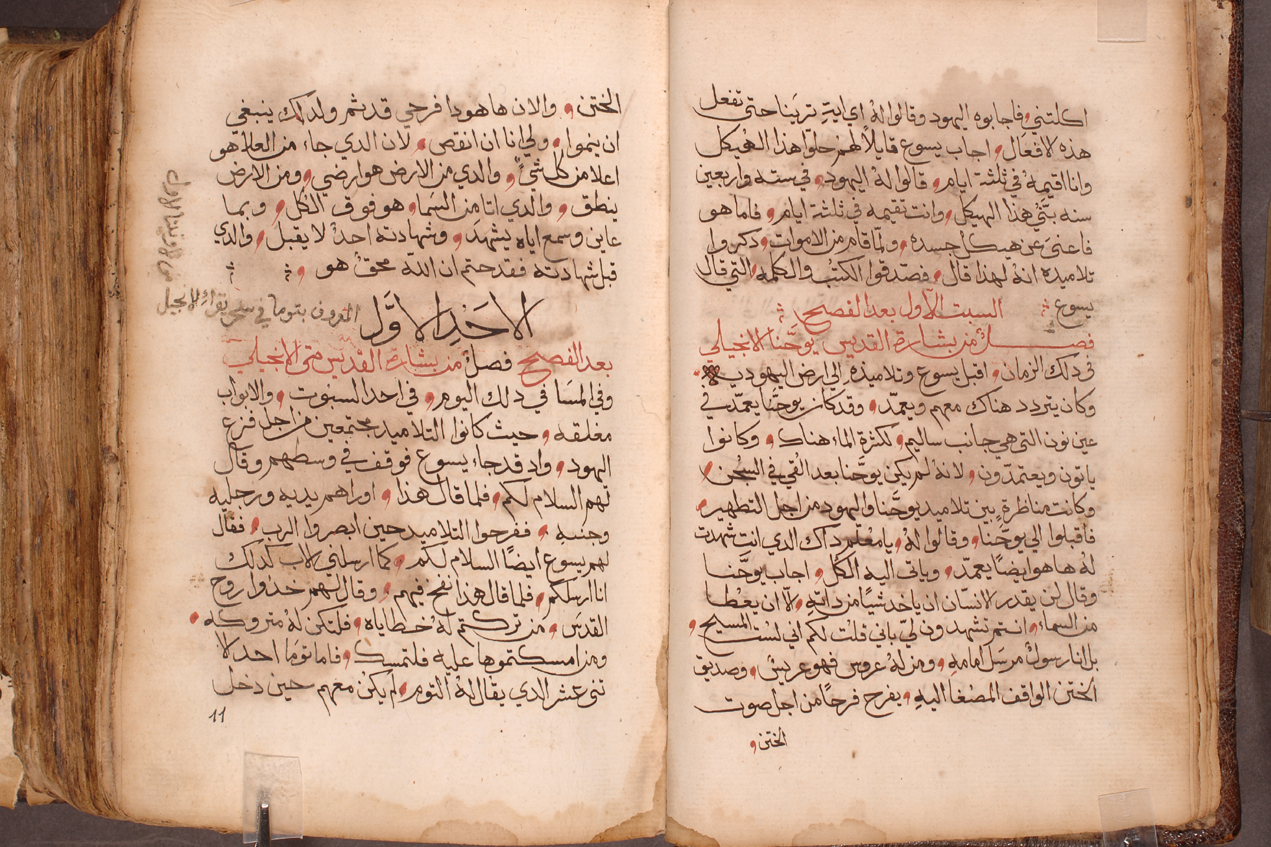 اكلتني، فاجابوه اليهود وقالوا لهُ اي ايةٍ ترينا حتى تفعل
هذه لافعال، اجاب يسوع قايلاً لهم حلوا هذا الهيكل
وانا اقيمهُ في ثلثة ايام، قالوا لهُ اليهود، في سته واربعين
سنه بني هذا الهيكل، وانت تقيمه في ثلثة ايام، فاما هو
فاعنى عن هيكل جسده، ولما قام من الاموات، دكروا
تلاميده انهُ لهدا قال، فصدقوا الكتب والكلمه، التي قال
يسوع
السبت الاول بعد الفصيح
فصل من بشارة القديس يوحنا الانجيلي
في دلك الزمان، اقبل يسوع وتلاميذه الي ارض اليهوديه
وكان يتردد هناك معهم ويعمد، وقد كان يوحنا يعمد في
عين نون التي هي جانب ساليم، لكثرة الماء هناك، وكانوا
ياتون ويعتمدون، لانهُ لم يكن يوحنا بعد القي في السجن،
وكانت مناظرةٍ بين تلاميد يوحنا واليهود من اجل التطهير،
فاقبلوا الي يوحنا، وقالوا لهُ، يا معلم داك الدي انت شهدت
لهُ ها هو ايضاً يعمد، وياتي اليه الكل، اجاب يوحنا
وقال لن يقدر لانسان ان ياخد شيئاً من داته، لا ان يعطا
من السماء، انتم تشهدون لي باني قلت لكم اني لست المسيح،
بل انا رسول مرسل امامهِ، ومن لهُ عروس فهو عريس، وصديق
الختن الواقف المصغا اليه، يفرح فرحاً من اجل صوت
الختن،
الختن، والان ها هودا فرحي قد تم ولدلك ينبغي
ان ينموا، ولي انا ان انقص، لان الدي جاء من العلا هو
اعلا من كل شيءٍ، والدي من الارض هو ارضي، ومن الارض
ينطق، والدي اتا من السما، هو فوق الكل، وبما
عاين وسمع اياه يشهد، وشهادته احد لا يقبل، والدي
قبل شهادتهُ فقد حتم ان الله محق هو،
الاحَد الاوَّل
المعروف بتوما في سحر يقراء الانجيل
بعد الفصيح فصل من بشارة القديس متى الانجيلي
وفي المسَا في دلك اليوم، في احد السبوت، والابواب
مغلقه، حيث كانوا التلاميد مجتمعين من اجل فزع
اليهود، واد قد جاء يسوع فوقف في وسطهم وقال
لهم السلام لكم، فلما قال هذا، اوراهم يديه ورجليه
وجنبه، ففرحوا التلاميد حين ابصروا الرب، فقال
لهم يسوع ايضاً السلام لكم، كما ارسلني الاب كدلك
انا ارسلكم، فلما قال هذا نفخ فيهم، وقال لهم خدوا روح
القدس، مَن تركتم لهُ خطاياه، فلتكن لهُ متروكه،
ومن امسكتموها عليه فلتمسك، فاما توما احد لا
تني عشر الدي يقال لهُ التوم، لم يكن معهم حين دخل
11